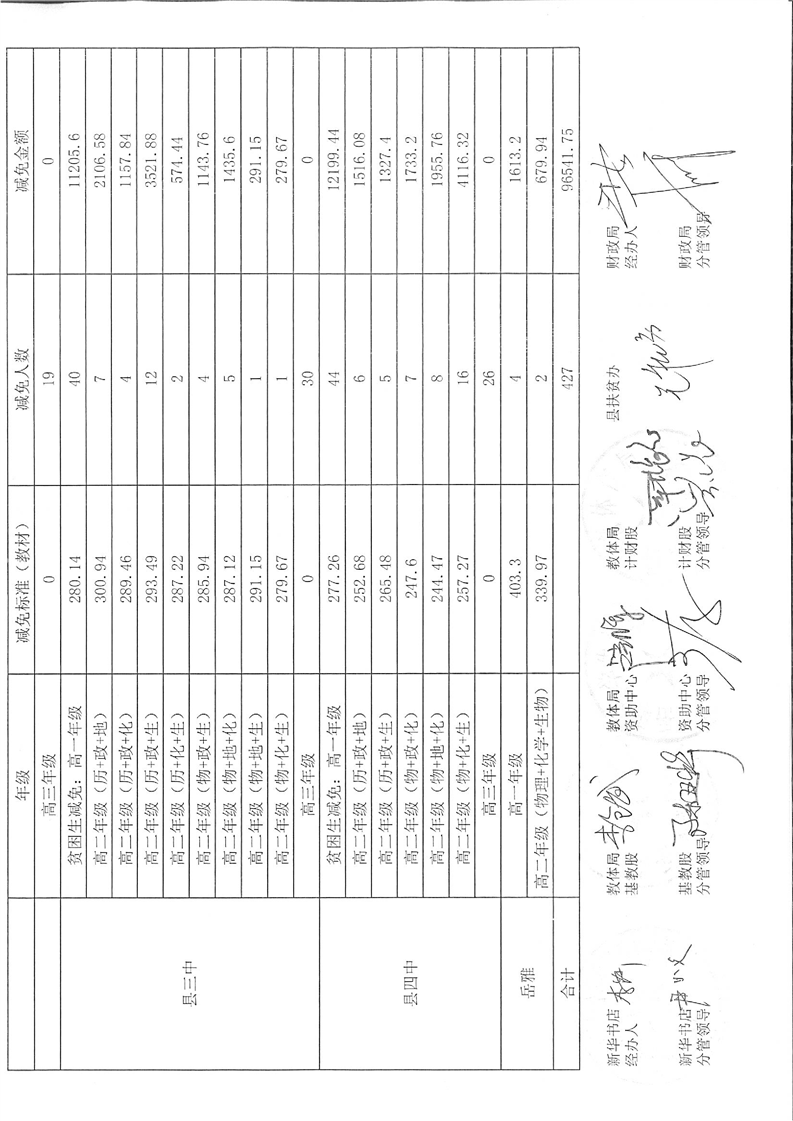 年级 减免标准（教材） 减免人数 减免金额
高三年级 0 19 0
县三中
贫困生减免：高一年级 280.14 40 11205.6
高二年级（历+政+地） 300.94 7 2106.58
高二年级（历+政+化） 289.46 4 1157.84
高二年级（历+政+生） 293.49 12 3521.88
高二年级（历+化+生） 287.22 2 574.44
高二年级（物+政+生） 285.94 4 1143.76
高二年级（物+地+化） 287.12 5 1435.6
高二年级（物+地+生） 291.15 1 291.15
高二年级（物+化+生） 279.67 1 279.67
高三年级 0 30 0
县四中
贫困生减免：高一年级 277.26 44 12199.44
高二年级（历+政+地） 252.68 6 1516.08
高二年级（历+政+生） 265.48 5 1327.4
高二年级（物+政+化） 247.6 7 1733.2
高二年级（物+地+化） 244.47 8 1955.76
高二年级（物+化+生） 257.27 16 4116.32
高三年级 0 26 0
岳雅
高一年级 403.3 4 1613.2
高二年级（物理+化学+生物） 339.97 2 679.94
合计 427 96541.75
新华书店 教体局 教体局 教体局 县扶贫办 财政局
经办人 基教股 资助中心 计财股 经办人
新华书店 基教股 资助中心 计财股 财政局
分管领导 分管领导 分管领导 分管领导 分管领导